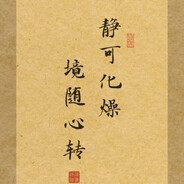 静可化燥
境随心转